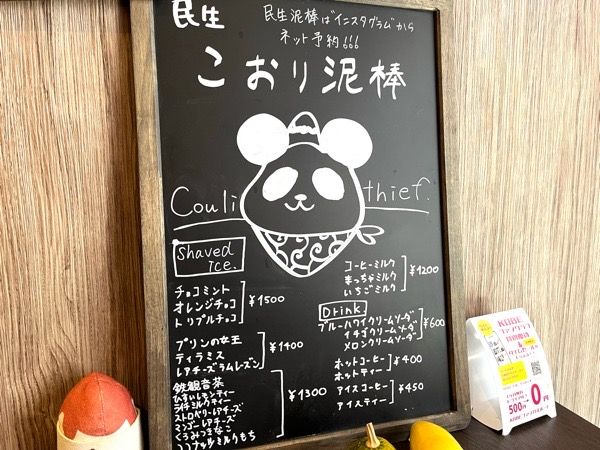 民生
民生泥棒は"インスタグラム"から
ネット予約!!!
こおり泥棒
Couli thief.
Shaved
ice.
チョコミント
オレンジチョコ
トリプルチョコ
¥1500
プリンの女王
ティラミス
レアチーズラムレーズン
¥1400
鉄観音茶
ライチミルクティー
ストロベリーレアチーズ
マンゴーレアチーズ
くるみつきなこ
ココナッツミルクもち
¥1300
コーヒーミルク
まっちゃミルク
いちごミルク
¥1200
Drink
ブルーハワイクリームソーダ
イチゴクリームソーダ
メロンクリームソーダ
¥600
ホットコーヒー
ホットティー
¥400
アイスコーヒー
アイスティー
¥450
KOBE
500円
0円